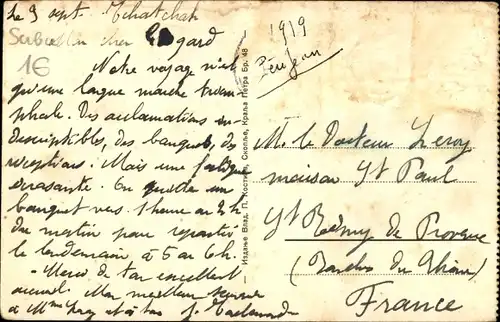 Le 9 sept.
mon cher Edgard
1€
Notre voyage n'est
qu'une longue marche triom-
phale. Des acclamations in-
descriptibles, des banquets, des
réceptions. Mais une fatigue
écrasante. On quitte un
banquet vers 1 heure ou 2 h
du matin pour repartir
le lendemain à 5 ou 6 h.
- Merci de ton excellent
accueil. Mon meilleur souvenir
à Mme Leroy et à toi
— Издање Влад. П. Костић, Скопље, Краља Петра Бр. 48
1919
M. le Docteur Leroy
maison St Paul
St Rémy de Provence
(Bouches du Rhône)
France